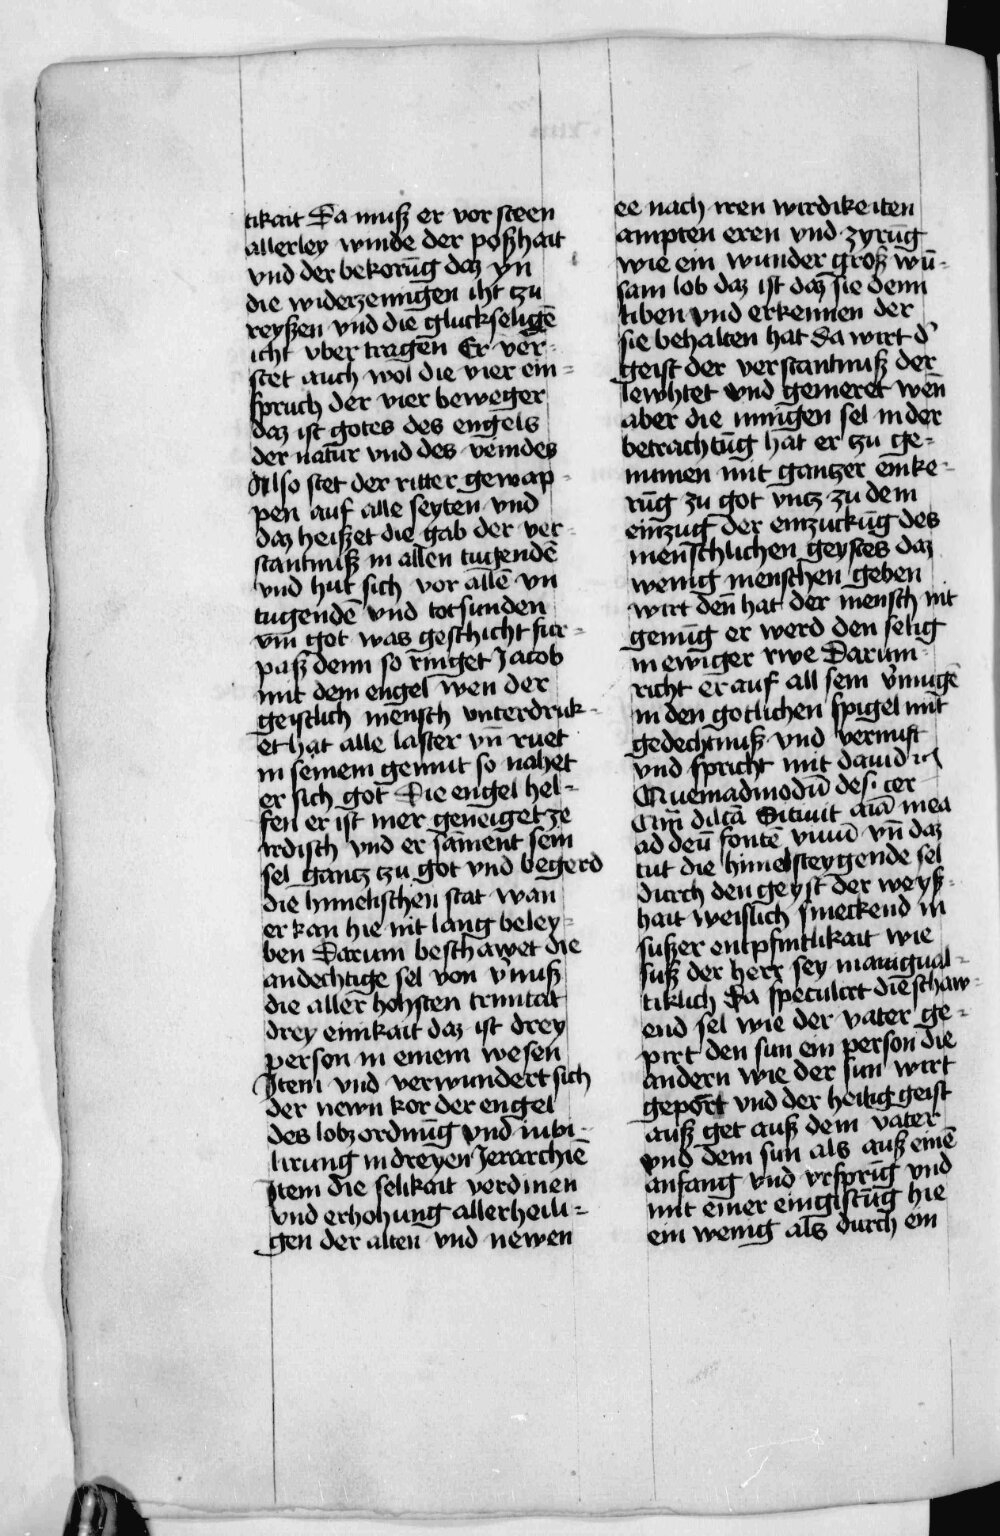 tikait Da muß er vor steen
allerley winde der poßhait
vnd der bekorūg daz yn
die widerzemigen iht tzu
reyßen vnd die gluckseligē
icht vber tragen Er ver-
stet auch wol die vier ein=
spruch der vier beweger
daz ist gotes des engels
der natur vnd des veindes
Also stet der ritter gewap-
pen auf alle seyten vnd
daz heißet die gab der ver-
stantnuß in allen tugendē
vnd hut sich vor allē vn
tugendē vnd totsunden
vm̄ got was geschicht fur-
paß denn so ringet Jacob
mit dem engel wen der
geistlich mensch vnterdruk-
et hat alle laster vn̄ ruet
in seinem gemut so nahet
er sich got Die engel hel-
fen er ist mer geneiget ze
irdisch vnd er sament sein
sel gantz tzu got vnd begerd
die himelischen stat wan
er kan hie nit lang beley-
ben Darum beschawet die
andechtige sel von vnmuß
die aller hohsten trinitat
drey einikait daz ist drey
person in einem wesen
Item vnd verwundert sich
der newn kor der engel
des lobz ordnūg vnd iubi-
lirung in dreyen Jerarchiē
Item die selikait verdinen
vnd erhohung aller heili=
gen der alten vnd newen
ee nach iren wirdikeiten
ampten eren vnd zyrūg
wie ein wunder groß wū-
sam lob daz ist daz sie denn
liben vnd erkennen der
sie behalten hat da wirt d'
geist der verstantnuß der
lewhtet vnd gemeret wen̄
aber die innigen sel in der
betrachtūg hat er tzu ge-
numen mit gantzer einke-
rūg zu got vntz zu dem
einzug der einzuckūg des
menschlichen geystes daz
wenig menschen geben
wirt den̄ hat der mensch nit
genūg er werd den selig
in ewiger rwe Darum
richt er auf all sein v'mugē
in den gotlichen spigel mit
gedechtnuß vnd vernuft
vnd spricht mit dauid
Quemadmodū desi cer
ad deū fontē viuū vn̄ daz
tut die himelsteygende sel
durch den geyst der weyß-
hait weislich smeckend in
sußer entpfintlikait wie
suß der herr sey manigual-
tiklich Da speculirt die schaw-
end sel wie der vater ge-
pirt den sun ein person die
andern wie der sun wirt
geport vnd der heilig geist
auß get auß dem vater
vnd dem sun als auß einē
anfang vnd vrsprūg vnd
mit einer eingistūg hie
ein wenig als durch ein